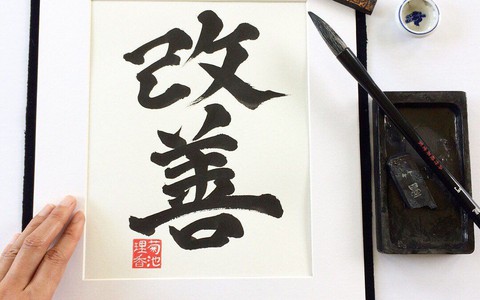 改善
菊池
理香